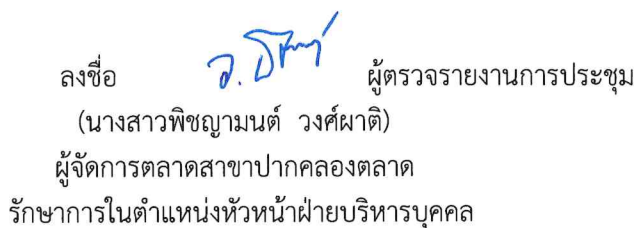 ลงชื่อ ผู้ตรวจรายงานการประชุม
(นางสาวพิชญามนต์ วงศ์ผาติ)
ผู้จัดการตลาดสาขาปากคลองตลาด
รักษาการในตำแหน่งหัวหน้าฝ่ายบริหารบุคคล